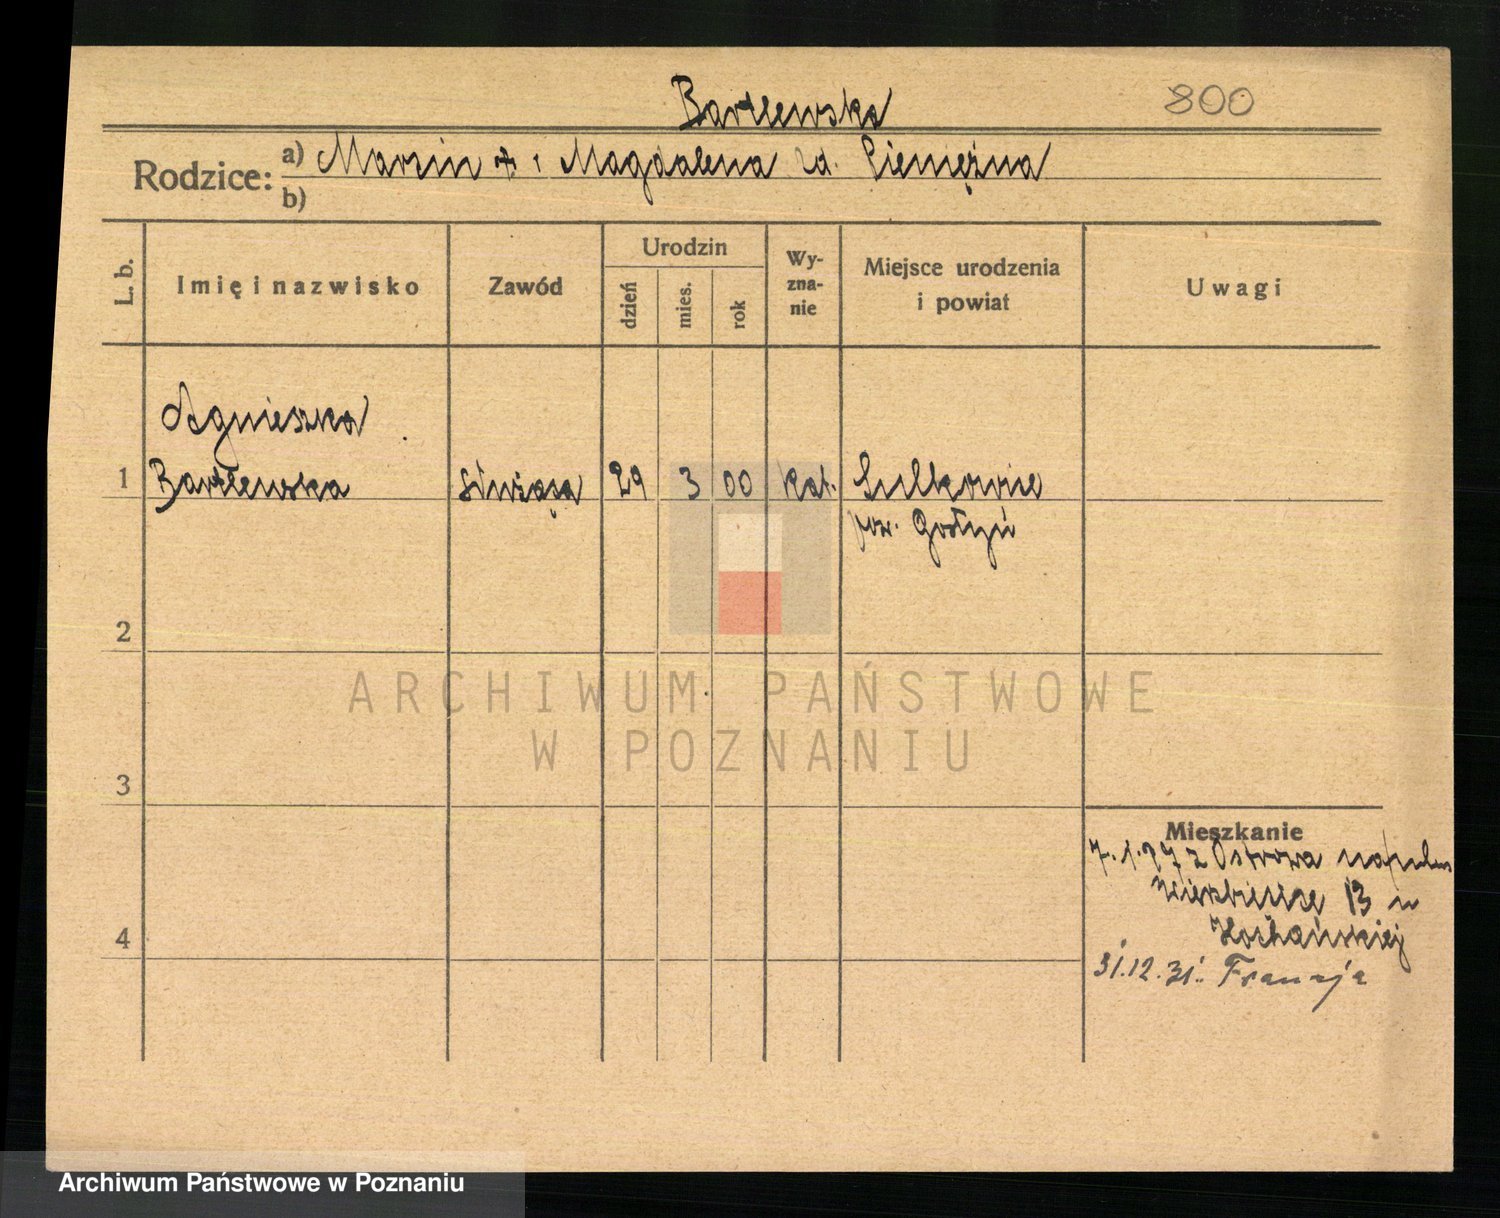 Bartlewska
800
Rodzice: a) Marcin + i Magdalena zd. Pieniężna
b)
L. b.
Imię i nazwisko
Zawód
Urodzin
dzień
mies.
rok
Wy-
zna-
nie
Miejsce urodzenia
i powiat
Uwagi
Agnieszka
1 Bartlewska służąca 29 3 00 kat. Sulkowie
pow. Gostyń
2
3
4
ARCHIWUM PAŃSTWOWE
W POZNANIU
Mieszkanie
7.1. z Ostroga
13 u
Kochańskiej
31.12.31. Francja
Archiwum Państwowe w Poznaniu